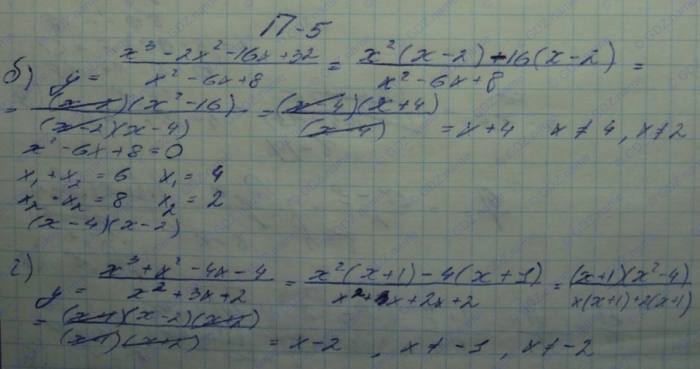 П-5
б) y = (x³ - 2x² - 16x + 32)/(x² - 6x + 8) = (x²(x-2) - 16(x-2))/(x² - 6x + 8) =
= ((x-2)(x²-16))/((x-2)(x-4)) = ((x-4)(x+4))/(x-4) = x+4 x ≠ 4, x ≠ 2
x² - 6x + 8 = 0
x₁ + x₂ = 6 x₁ = 4
x₂ · x₂ = 8 x₂ = 2
(x-4)(x-2)
г) y = (x³ + x² - 4x - 4)/(x² + 3x + 2) = (x²(x+1) - 4(x+1))/(x² + x + 2x + 2) = ((x+1)(x²-4))/(x(x+1)+2(x+1))
= ((x+1)(x-2)(x+2))/((x+1)(x+2)) = x-2, x ≠ -1, x ≠ -2